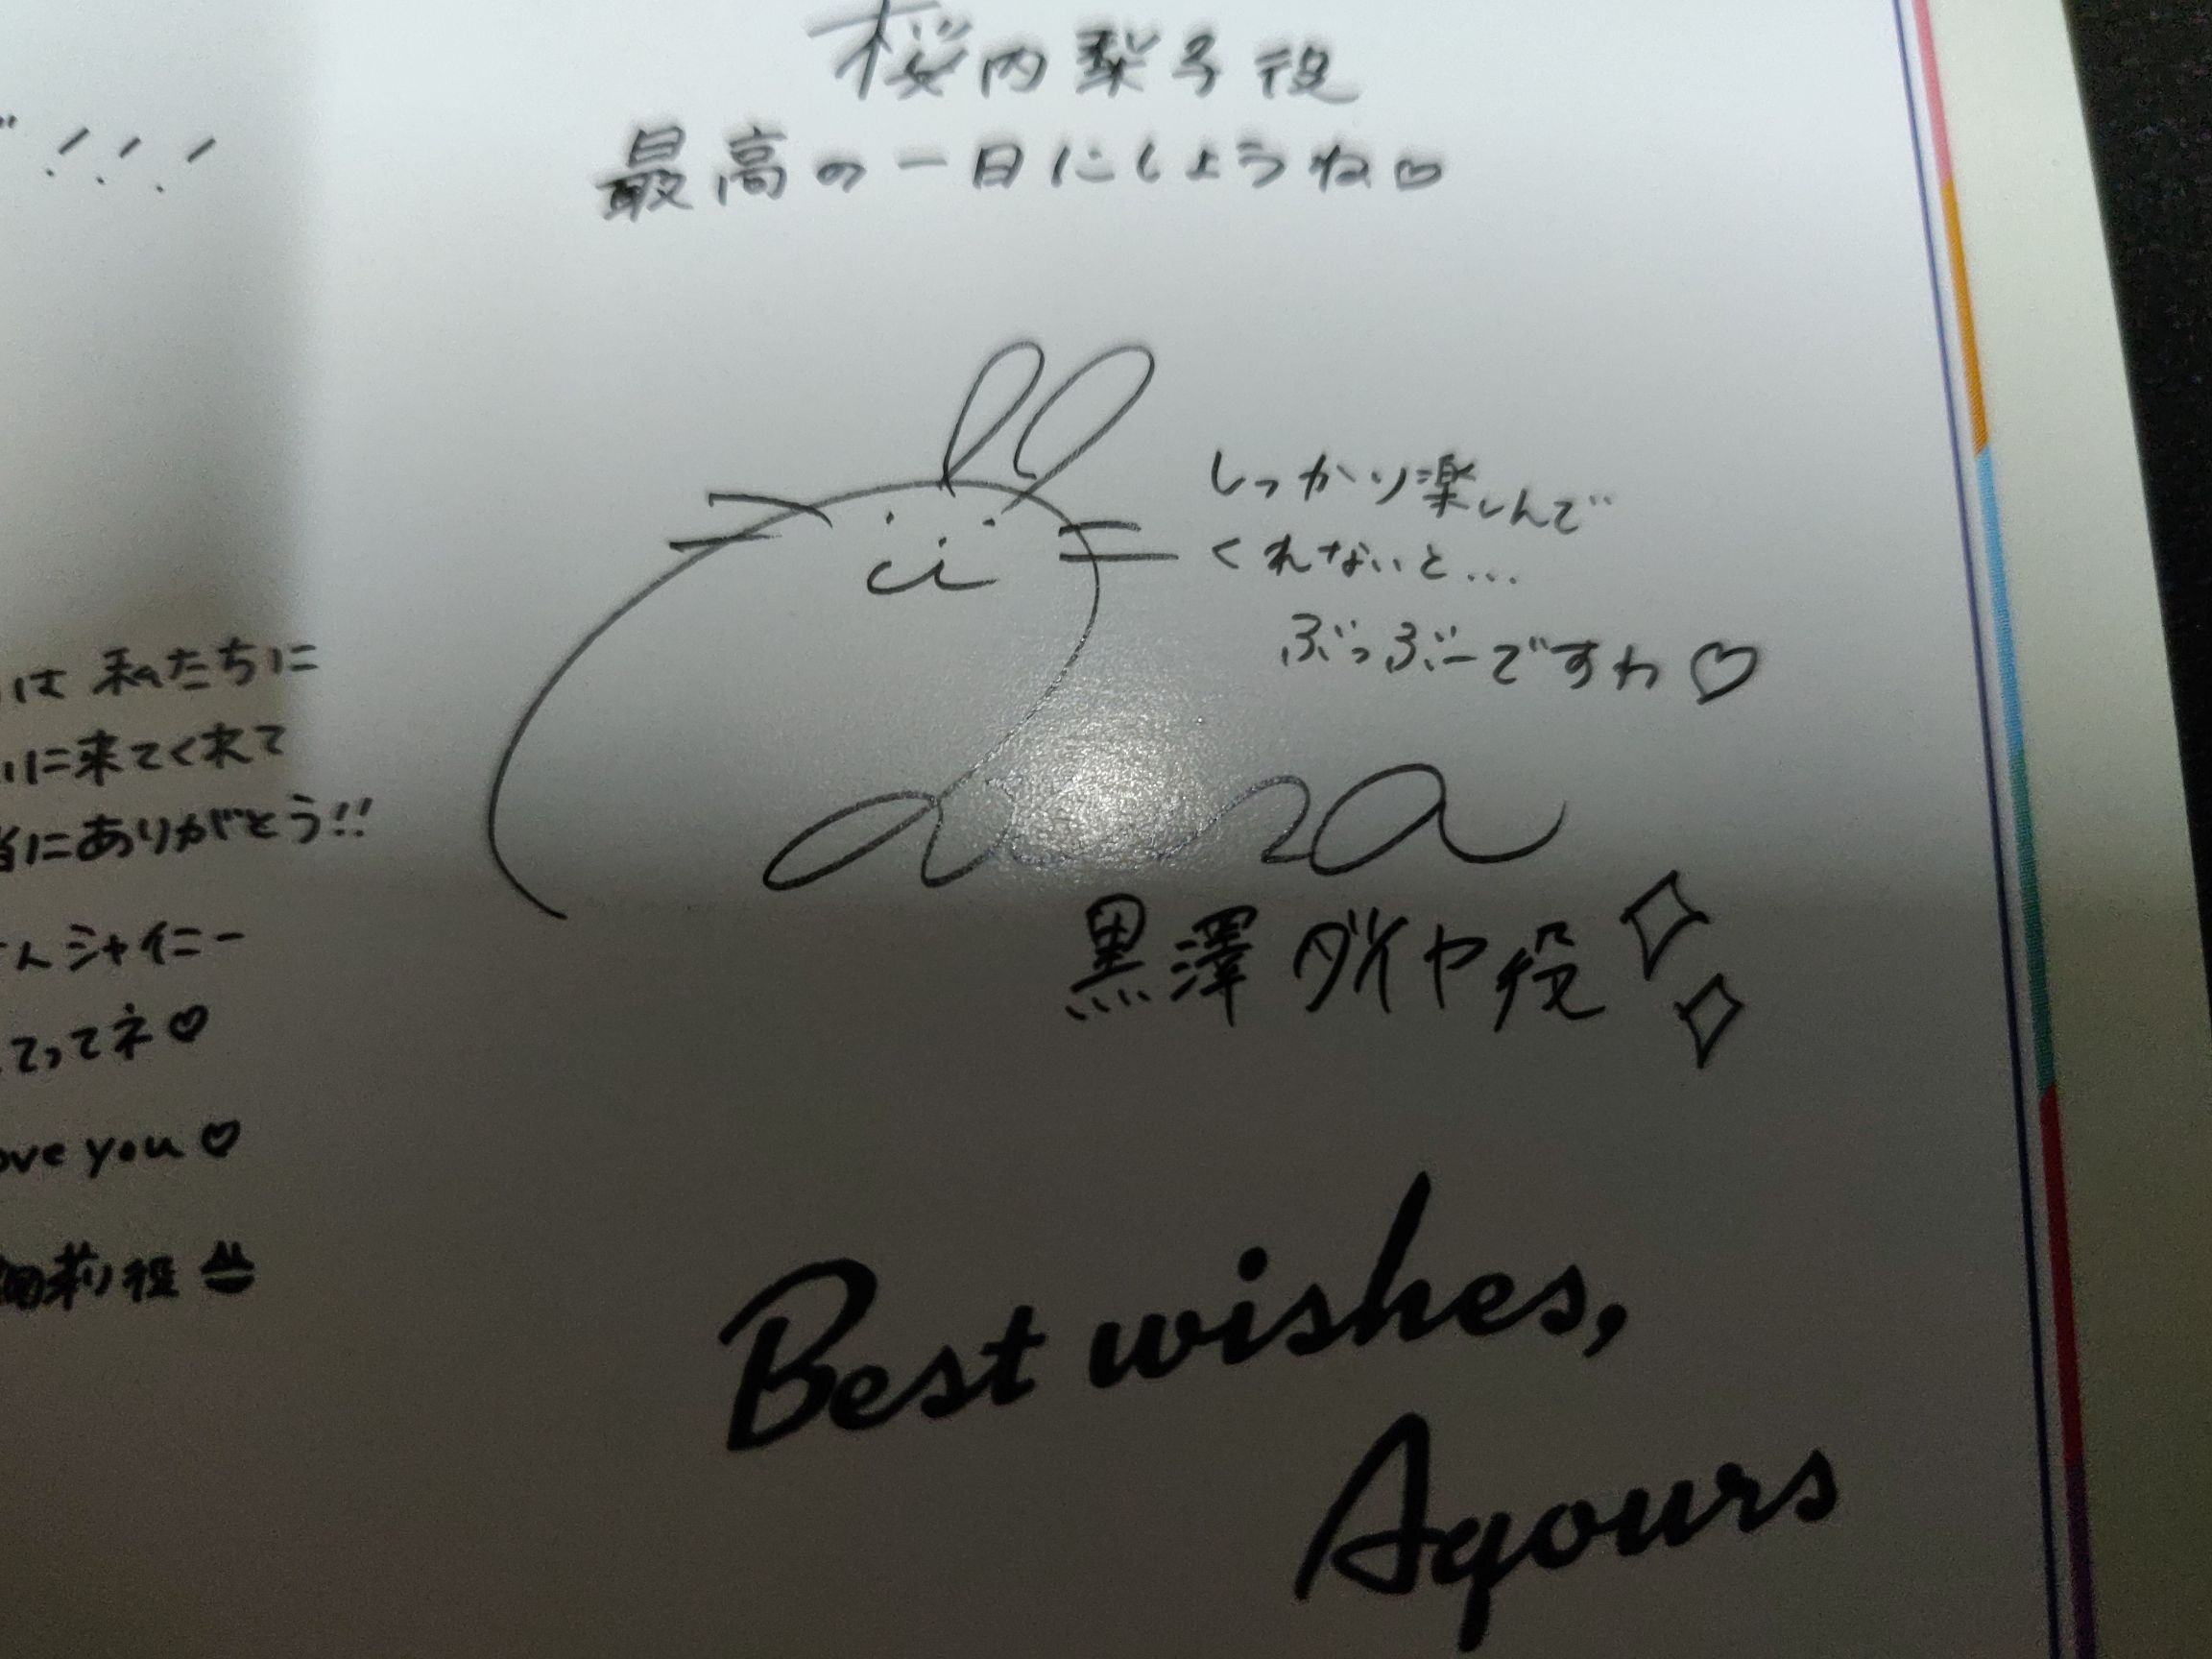 !!!
は 私たちに
に来てくれて
にありがとう!!
シャイニー
てってネ♡
ove you ♡
莉役
桜内梨子役
最高の一日にしようね♡
しっかり楽しんで
くれないと...
ぶっぶーですわ♡
黒澤ダイヤ役
Best wishes,
Aqours